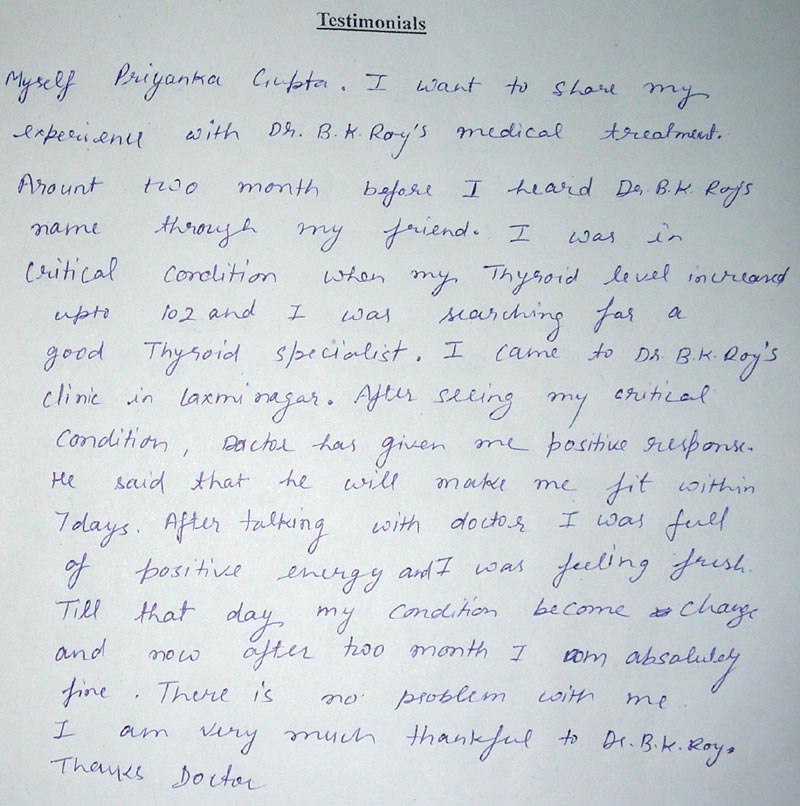 Testimonials
Myself Priyanka Gupta. I want to share my
experience with Dr. B.K. Roy's medical treatment.
Arount two month before I heard Dr. B.K. Roys
name through my friend. I was in
critical condition when my Thyroid level increased
upto 102 and I was searching for a
good Thyroid specialist. I came to Dr. B.K. Roy's
clinic in laxmi nagar. After seeing my critical
condition, Doctor has given me positive response.
He said that he will make me fit within
7days. After talking with doctor I was full
of positive energy and I was feeling fresh.
Till that day my condition become change
and now after two month I am absolutely
fine. There is no problem with me
I am very much thankful to Dr. B.K. Roy.
Thanks Doctor